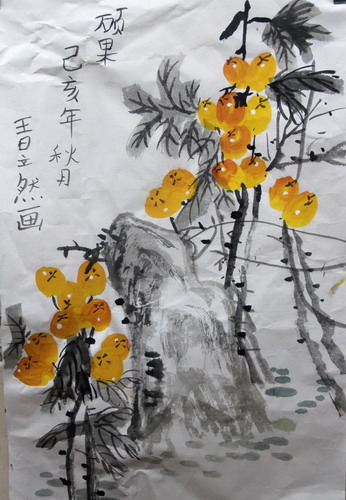 硕果
己亥年 秋月
王日立然画